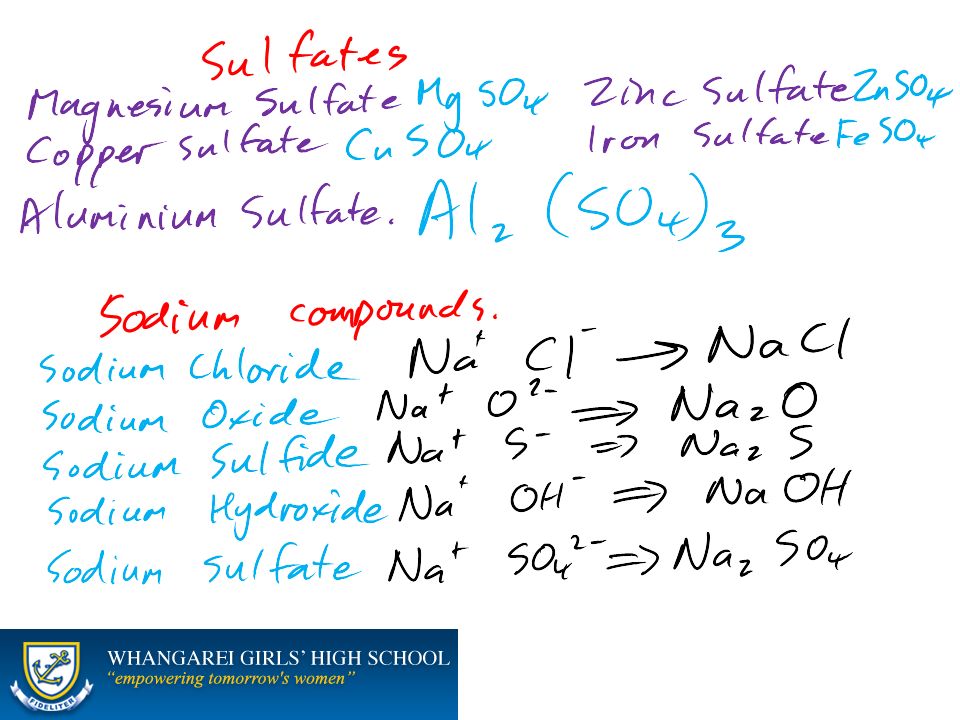 Sulfates
Magnesium Sulfate MgSO₄ Zinc Sulfate ZnSO₄
Copper sulfate CuSO₄ Iron Sulfate FeSO₄
Aluminium Sulfate. Al₂(SO₄)₃
Sodium compounds.
Sodium Chloride Na⁺ Cl⁻ → NaCl
Sodium Oxide Na⁺ O²⁻ ⇒ Na₂O
Sodium Sulfide Na⁺ S⁻ ⇒ Na₂S
Sodium Hydroxide Na⁺ OH⁻ ⇒ NaOH
Sodium sulfate Na⁺ SO₄²⁻ ⇒ Na₂SO₄
WHANGAREI GIRLS' HIGH SCHOOL
"empowering tomorrow's women"
FIDELITER